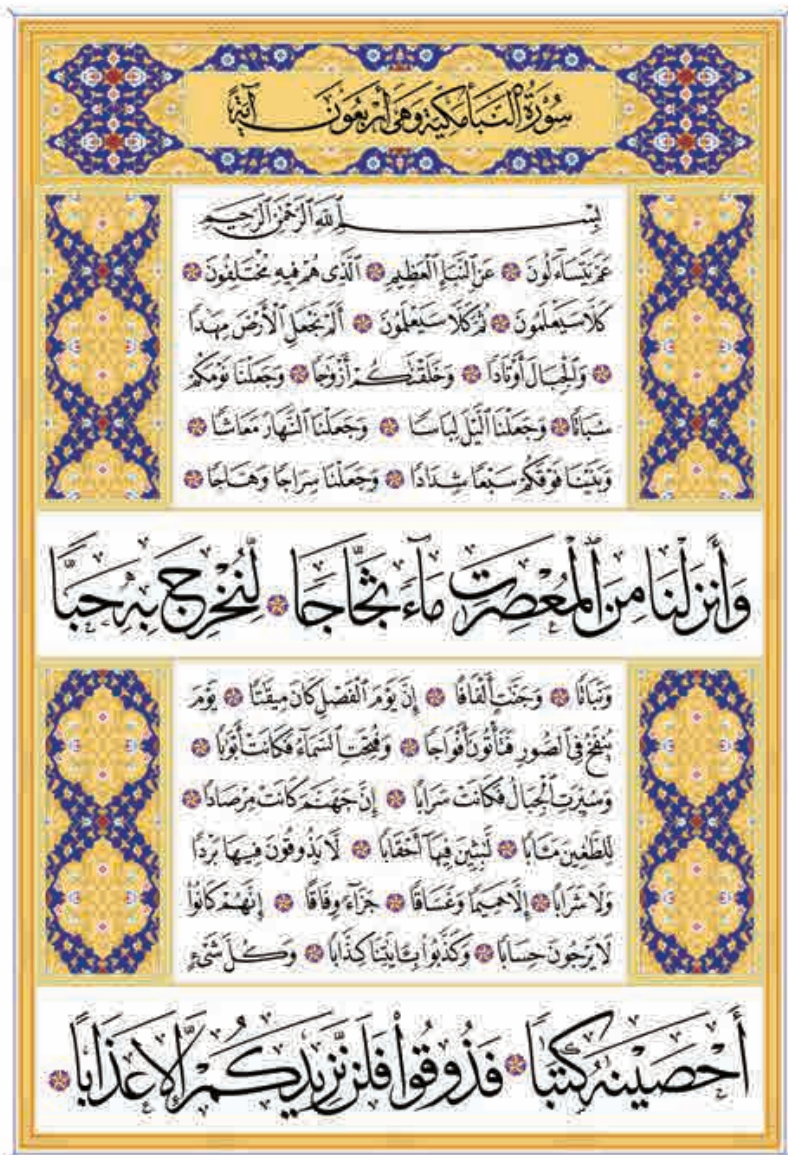 سُورَةُ ٱلنَّبَأِ مَكِّيَّة وَهِيَ أَرْبَعُونَ آيَةً
بِسْمِ ٱللَّهِ ٱلرَّحْمَٰنِ ٱلرَّحِيمِ
عَمَّ يَتَسَآءَلُونَ ۝ عَنِ ٱلنَّبَإِ ٱلْعَظِيمِ ۝ ٱلَّذِى هُمْ فِيهِ مُخْتَلِفُونَ ۝
كَلَّا سَيَعْلَمُونَ ۝ ثُمَّ كَلَّا سَيَعْلَمُونَ ۝ أَلَمْ نَجْعَلِ ٱلْأَرْضَ مِهَٰدًا
۝ وَٱلْجِبَالَ أَوْتَادًا ۝ وَخَلَقْنَٰكُمْ أَزْوَٰجًا ۝ وَجَعَلْنَا نَوْمَكُمْ
سُبَاتًا ۝ وَجَعَلْنَا ٱلَّيْلَ لِبَاسًا ۝ وَجَعَلْنَا ٱلنَّهَارَ مَعَاشًا ۝
وَبَنَيْنَا فَوْقَكُمْ سَبْعًا شِدَادًا ۝ وَجَعَلْنَا سِرَاجًا وَهَّاجًا ۝
وَأَنزَلْنَا مِنَ ٱلْمُعْصِرَٰتِ مَآءً ثَجَّاجًا ۝ لِّنُخْرِجَ بِهِۦ حَبًّا
وَنَبَاتًا ۝ وَجَنَّٰتٍ أَلْفَافًا ۝ إِنَّ يَوْمَ ٱلْفَصْلِ كَانَ مِيقَٰتًا ۝ يَوْمَ
يُنفَخُ فِى ٱلصُّورِ فَتَأْتُونَ أَفْوَاجًا ۝ وَفُتِحَتِ ٱلسَّمَآءُ فَكَانَتْ أَبْوَٰبًا ۝
وَسُيِّرَتِ ٱلْجِبَالُ فَكَانَتْ سَرَابًا ۝ إِنَّ جَهَنَّمَ كَانَتْ مِرْصَادًا ۝
لِّلطَّٰغِينَ مَـَٔابًا ۝ لَّٰبِثِينَ فِيهَآ أَحْقَابًا ۝ لَّا يَذُوقُونَ فِيهَا بَرْدًا
وَلَا شَرَابًا ۝ إِلَّا حَمِيمًا وَغَسَّاقًا ۝ جَزَآءً وِفَاقًا ۝ إِنَّهُمْ كَانُوا۟
لَا يَرْجُونَ حِسَابًا ۝ وَكَذَّبُوا۟ بِـَٔايَٰتِنَا كِذَّابًا ۝ وَكُلَّ شَىْءٍ
أَحْصَيْنَٰهُ كِتَٰبًا ۝ فَذُوقُوا۟ فَلَن نَّزِيدَكُمْ إِلَّا عَذَابًا ۝